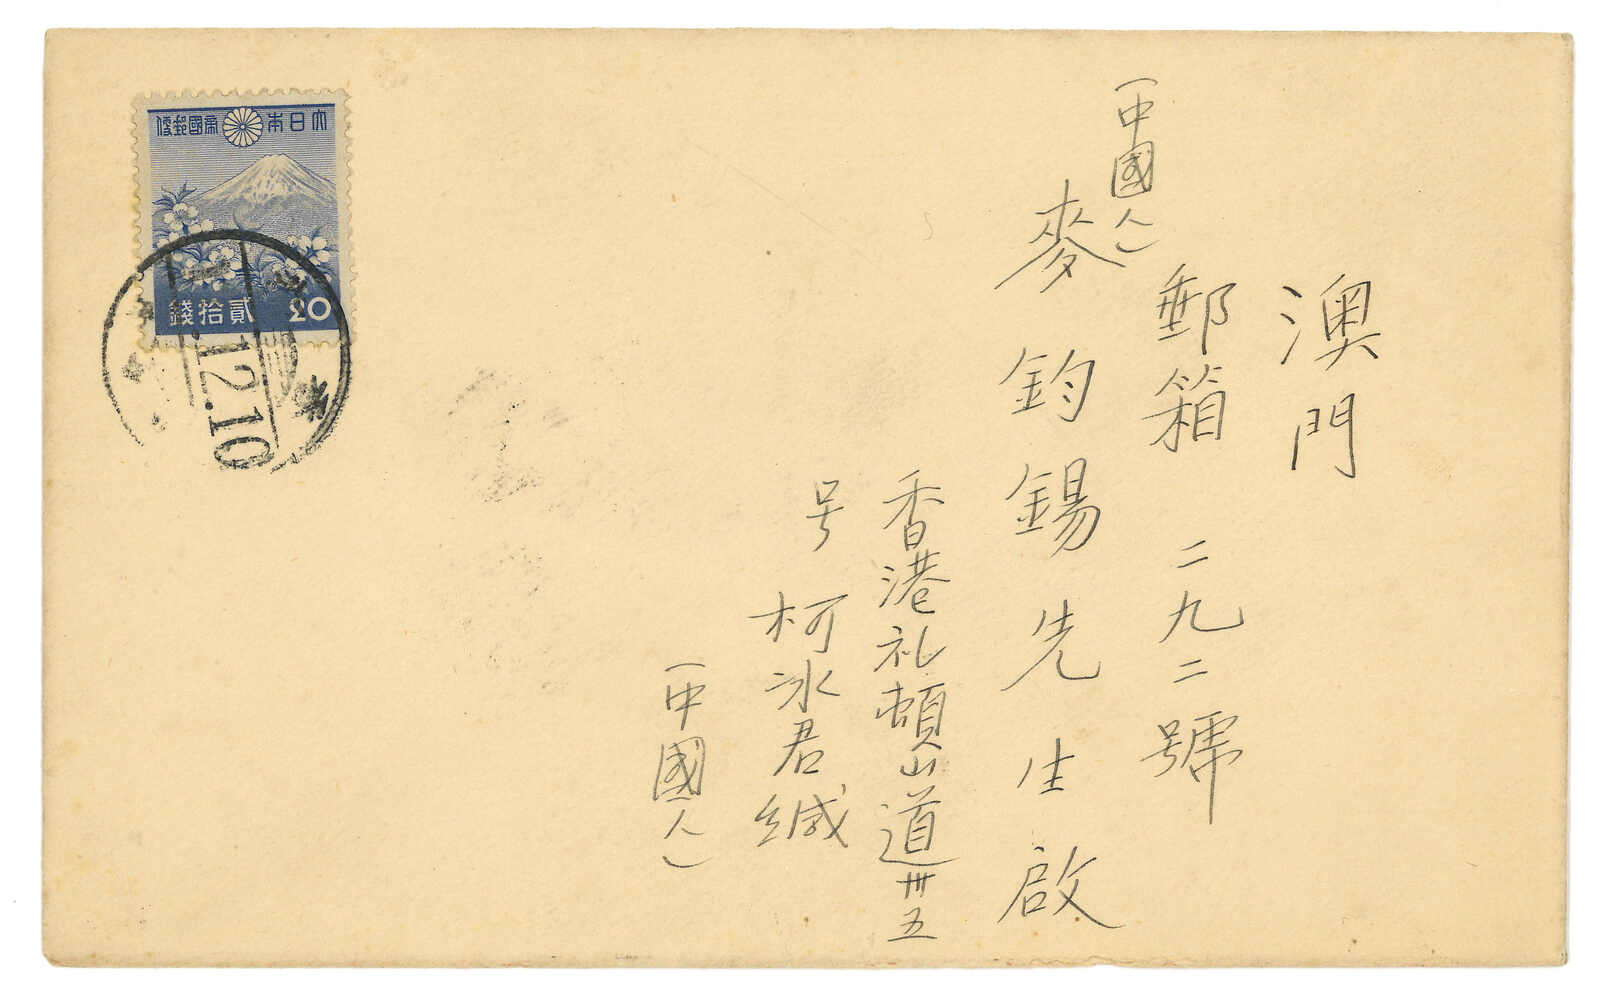 澳門
郵箱 二九二號
(中國人)
麥鈞錫先生啟
香港礼頓山道卅五
号 柯冰君緘
(中國人)
大日本 帝國郵便
貳拾錢 20
.12.10